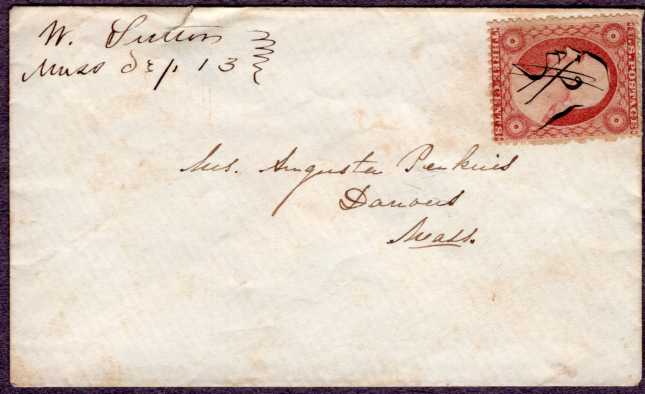 W. Sutton
Mass Sep 13
Mrs. Augusta Perkins
Danvers
Mass.
U.S. POSTAGE
THREE CENTS